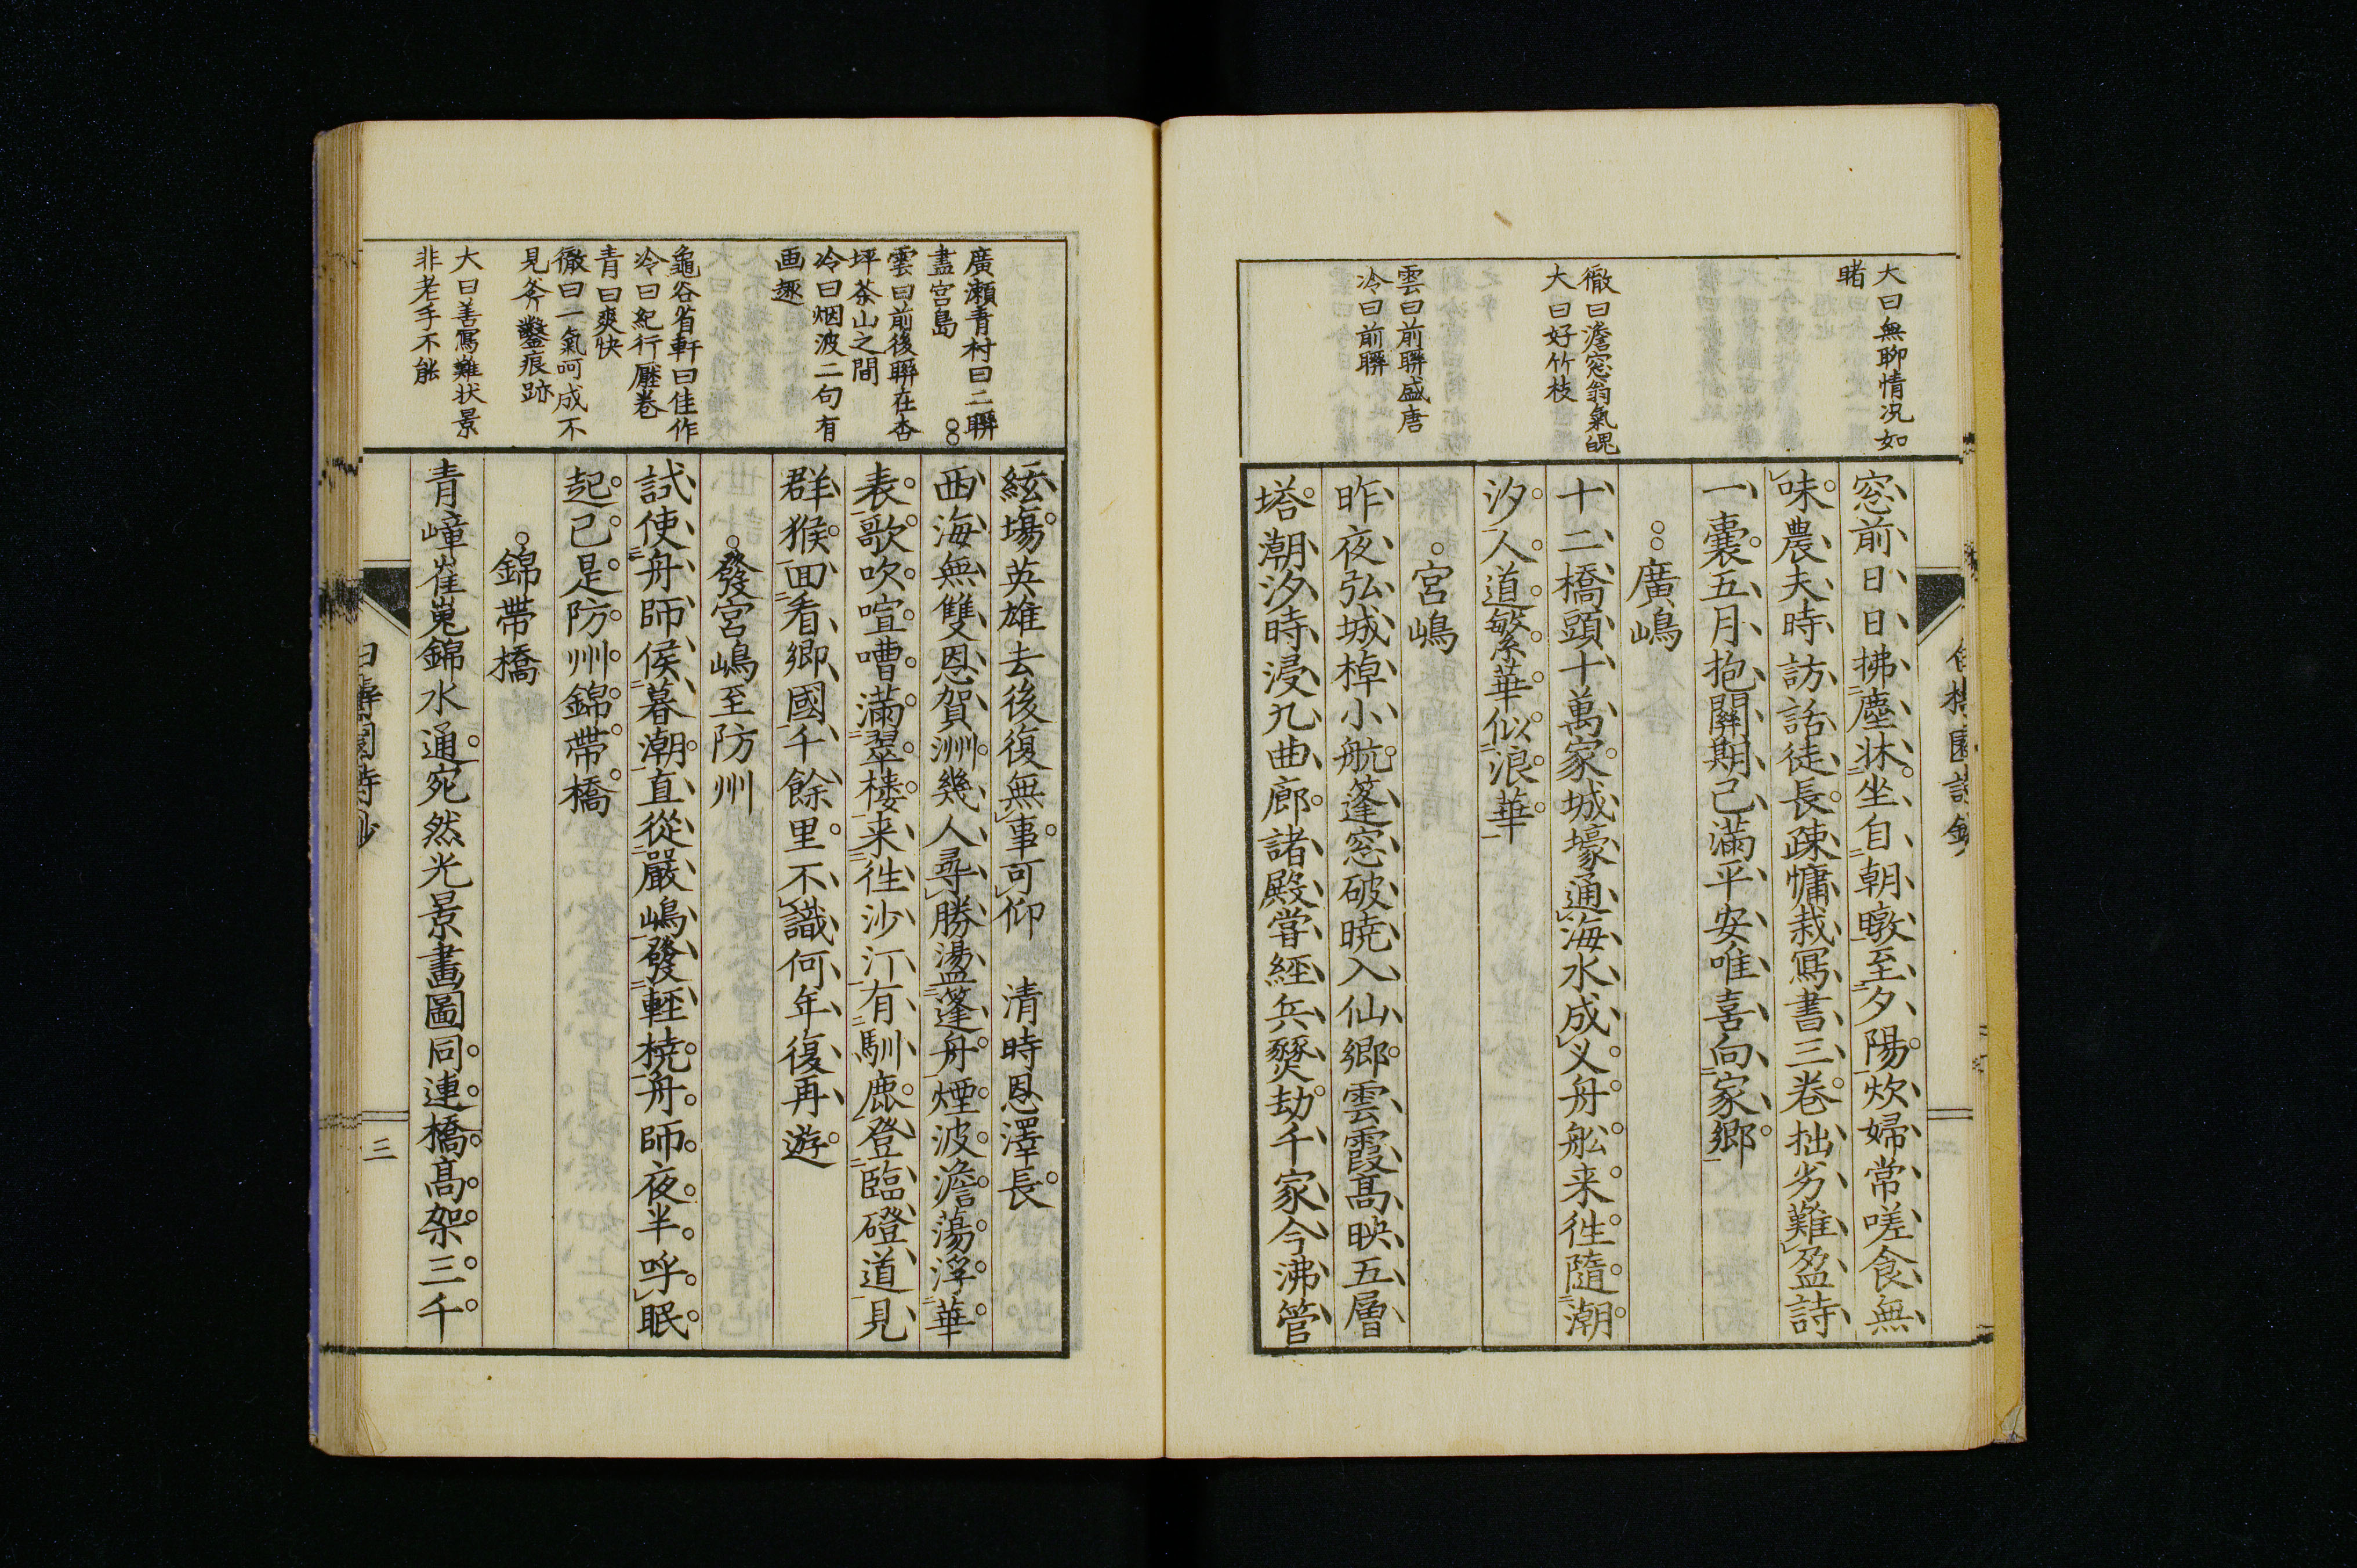 大曰無聊情况如
睹
徹曰澹窓翁氣魄
大曰好竹枝
雲曰前聯盛唐
冷曰前聯
窓前日日拂塵牀坐自朝暾至夕陽炊婦常嗟食無
味農夫時訪話徒長疎慵裁寫書三卷拙劣難盈詩
一囊五月抱關期已滿平安唯喜向家鄉
廣嶋
十二橋頭十萬家城壕通海水成义舟舩来徃隨潮
汐人道繁華似浪華
宮嶋
昨夜弘城棹小航篷窓破暁入仙鄉雲霞髙映五層
塔潮汐時浸九曲廊諸殿甞經兵燹劫千家今沸管
廣瀬青村曰二聯
盡宮島
雲曰前後聯在杏
坪茶山之間
冷曰烟波二句有
画趣
龜谷省軒曰佳作
冷曰紀行壓卷
青曰爽快
徹曰一氣呵成不
見斧鑿痕跡
大曰善寫難状景
非老手不能
絃塲英雄去後復無事可仰 清時恩澤長
西海無雙恩賀洲幾人尋勝盪篷舟煙波澹蕩浮華
表歌吹喧嘈滿翠楼来徃沙汀有馴鹿登臨磴道見
群猴回看鄉國千餘里不識何年復再遊
發宮嶋至防州
試使舟師候暮潮直從嚴嶋發輕橈舟師夜半呼眠
起已是防州錦帶橋
錦帶橋
青嶂崔嵬錦水通宛然光景畫圖同連橋髙架三千
三